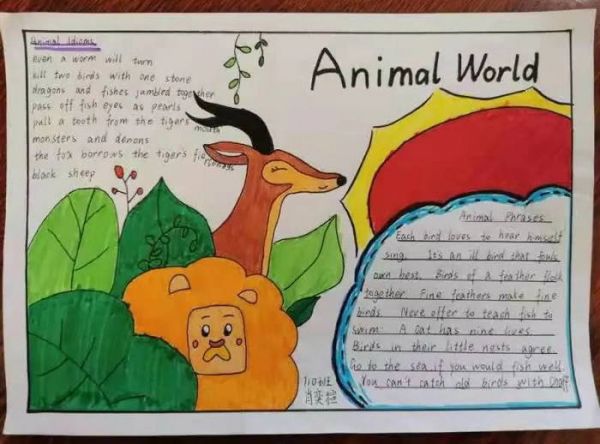 Animal Idioms
even a worm will turn
kill two birds with one stone
dragons and fishes jumbled together
pass off fish eyes as pearls
pull a tooth from the tigers mouth
monsters and demons
the fox borrows the tiger's fierceness
black sheep
Animal World
Animal Phrases
Each bird loves to hear himself
sing. It's an ill bird that fouls
own best. Birds of a feather flock
together Fine feathers make fine
birds. Neve offer to teach fish to
swim. A cat has nine lives.
Birds in their little nests agree.
Go to the sea, if you would fish well.
You can't catch old birds with Chaff
710班
肖奕楦